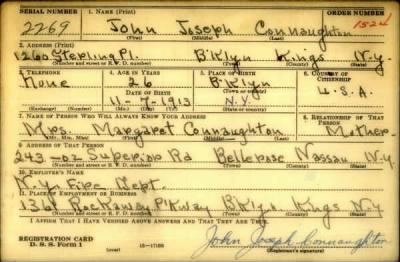 SERIAL NUMBER 1. NAME (Print) ORDER NUMBER
2269 John Joseph Connaughton 1524
(First) (Middle) (Last)
2. ADDRESS (Print)
1260 Sterling Pl. B'klyn Kings N.Y.
(Number and street or R. F. D. number) (Town) (County) (State)
3. TELEPHONE 4. AGE IN YEARS 5. PLACE OF BIRTH 6. COUNTRY OF CITIZENSHIP
None 26 B'klyn
DATE OF BIRTH (Town or county)
11-7-1913 N.Y. U.S.A.
(Exchange) (Number) (Mo.) (Day) (Yr.) (State or country)
7. NAME OF PERSON WHO WILL ALWAYS KNOW YOUR ADDRESS 8. RELATIONSHIP OF THAT PERSON
Mrs. Margaret Connaughton Mother
(Mr., Mrs., Miss) (First) (Middle) (Last)
9. ADDRESS OF THAT PERSON
243-02 Superior Rd Bellerose Nassau N.Y.
(Number and street or R. F. D. number) (Town) (County) (State)
10. EMPLOYER'S NAME
N.Y. Fire Dept.
11. PLACE OF EMPLOYMENT OR BUSINESS
1361 Rockaway P'kway B'klyn Kings N.Y.
(Number and street or R. F. D. number) (Town) (County) (State)
I AFFIRM THAT I HAVE VERIFIED ABOVE ANSWERS AND THAT THEY ARE TRUE.
REGISTRATION CARD
D. S. S. Form 1 (over) 16-17105 John Joseph Connaughton
(Registrant's signature)